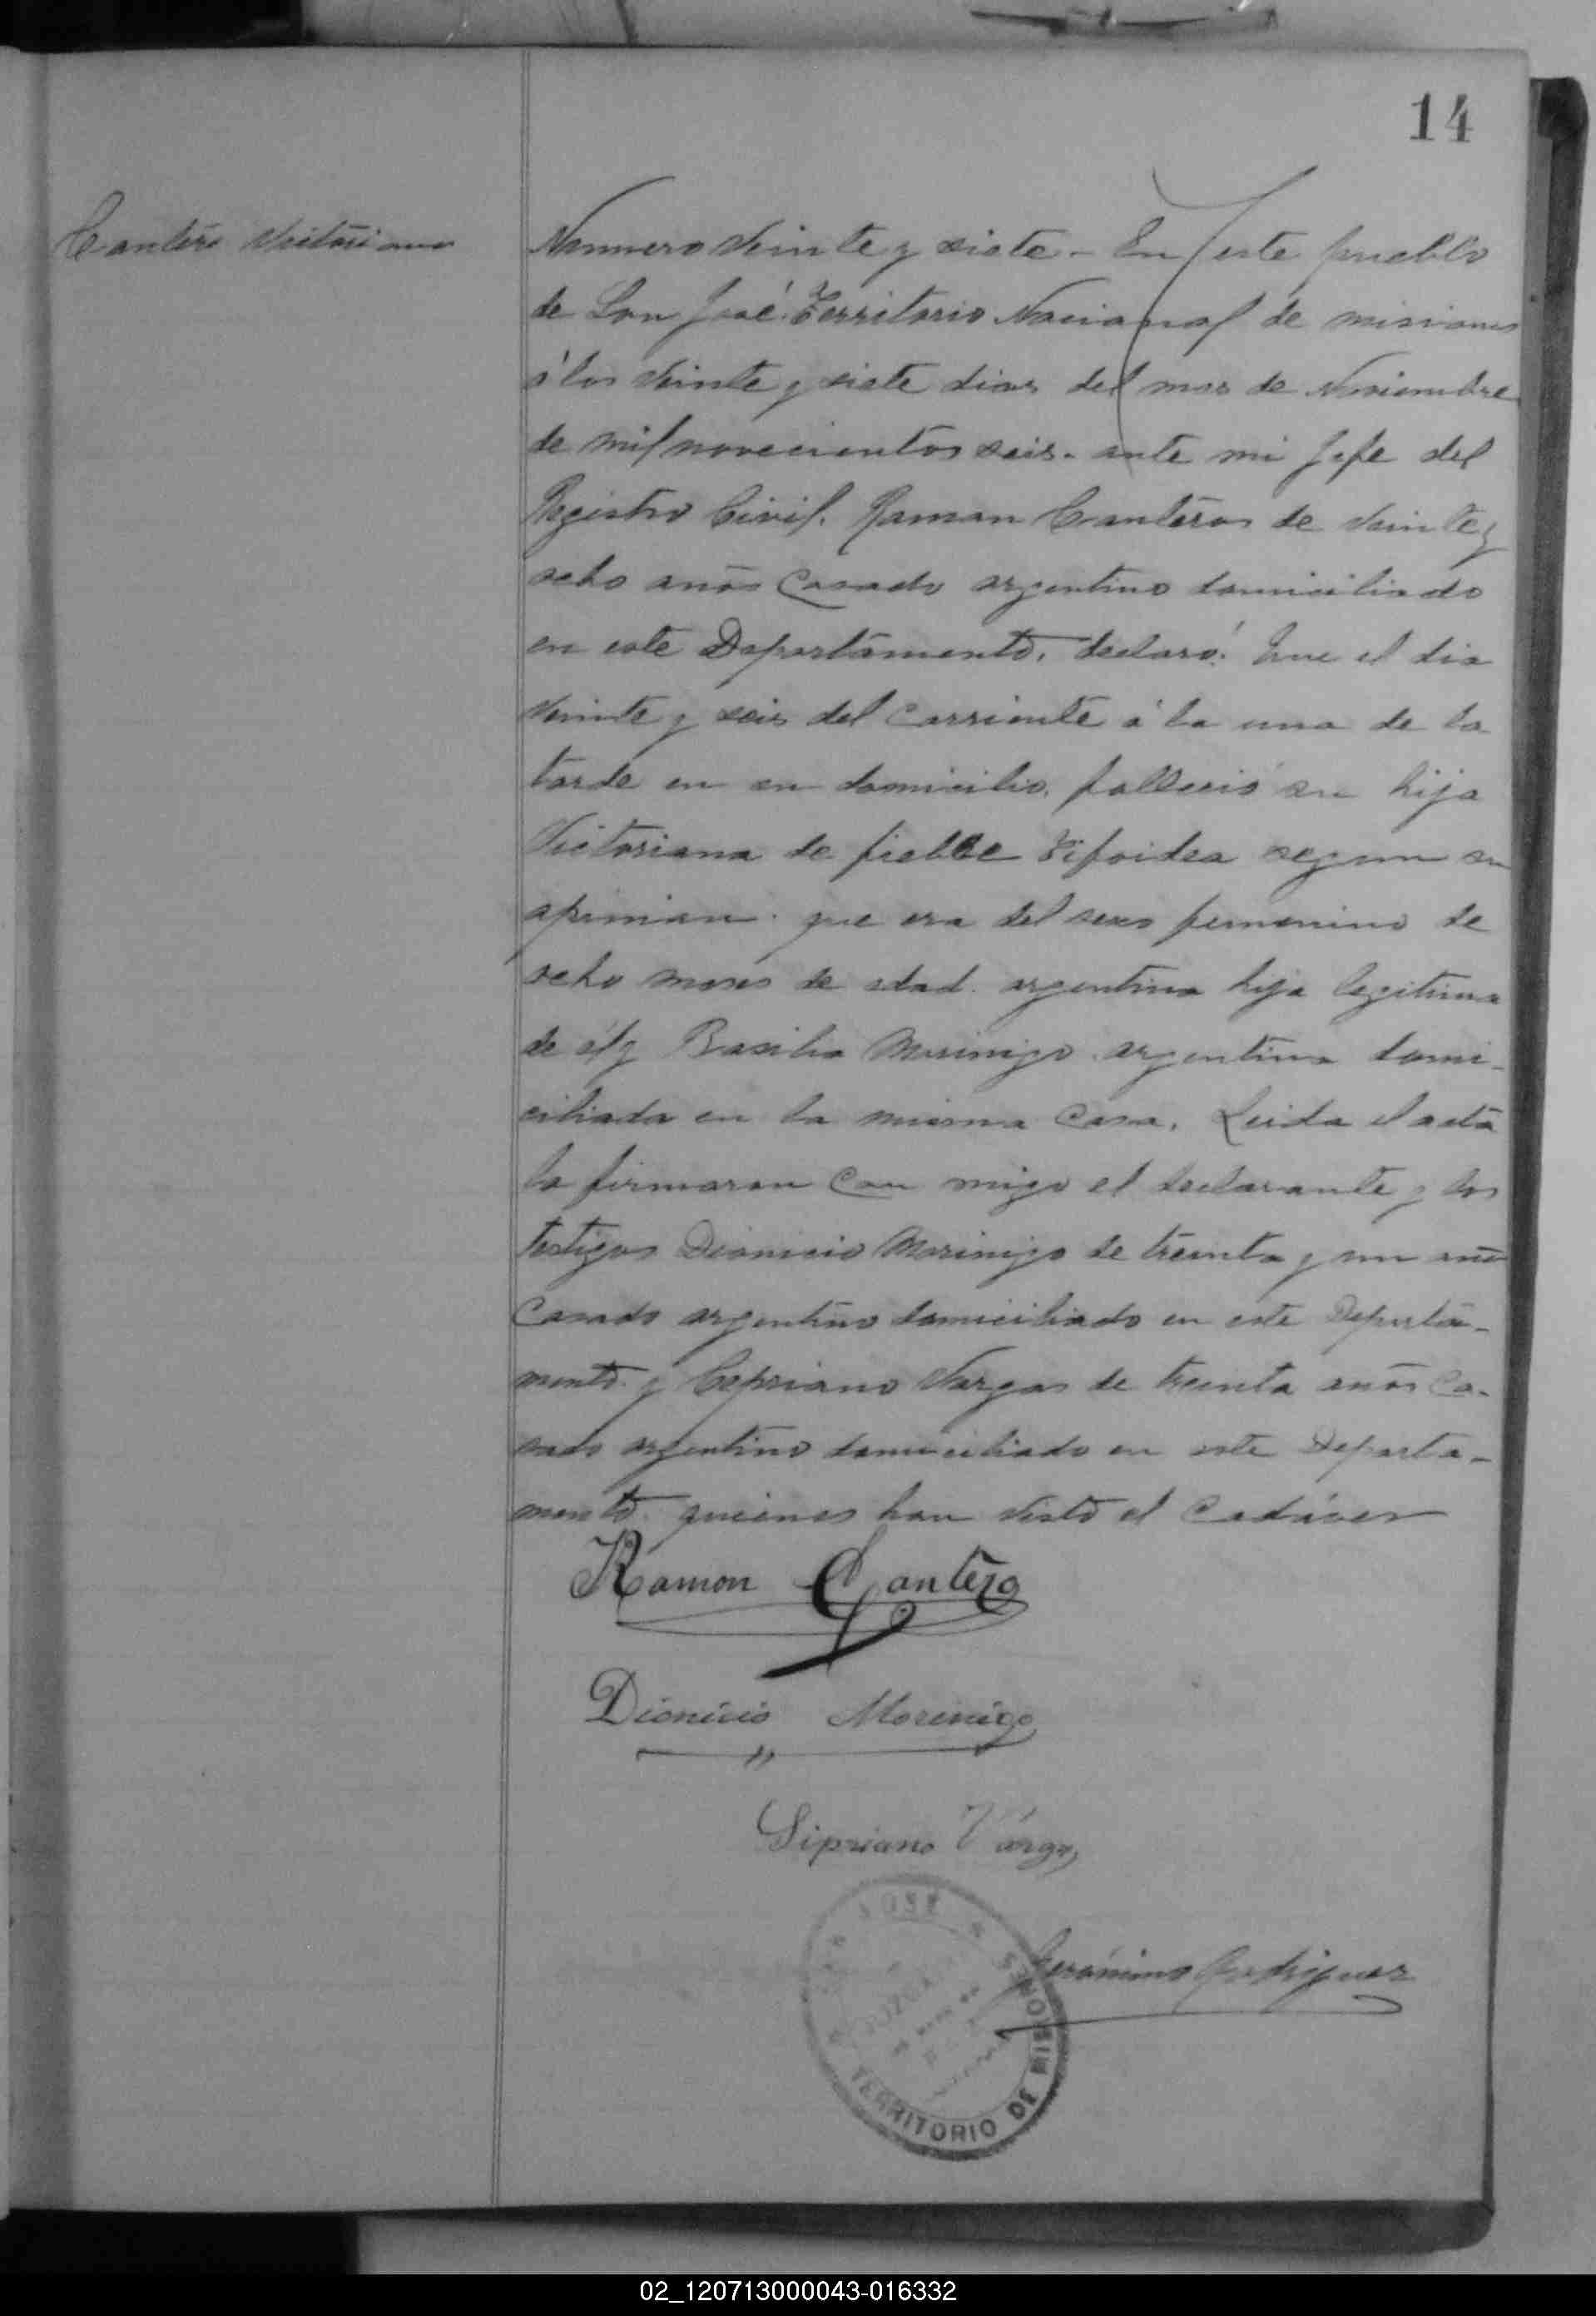 14
Cantero Victoriana
Numero veinte y siete - En este pueblo
de San José. Territorio Nacional de misiones
á los veinte y siete dias del mes de Noviembre
de mil novecientos seis. ante mi Jefe del
Registro Civil. Ramon Canteros de veinte y
ocho años Casado argentino domiciliado
en este Departamento. declaró: Que el dia
veinte y seis del Corriente á la una de la
tarde en su domicilio. fallecio su hija
Victoriana de fiebbe Tifoidea segun su
opinion. que era del sexo femenino de
ocho meses de edad. argentina hija legitima
de él y Basilia Morinigo argentina domi-
ciliada en la misma Casa. Leida el acta
la firmaron Con migo el declarante y los
testigos Dionicio Morinigo de treinta y un año
Casado argentino domiciliado en este Departa-
mento. y Cepriano Vargas de treinta años Ca-
sado argentino domiciliado en este Departa-
mento. quienes han visto el Cadáver
Ramon Cantero
Dionicio Morinigo
Sipriano Várgas
Gerónimo Rodriguez
JOSE
TERRITORIO DE MISIONES
02_120713000043-016332